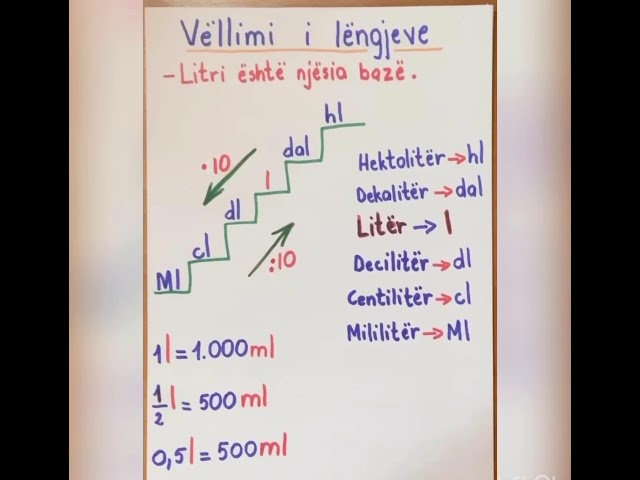 Vëllimi i lëngjeve
- Litri është njësia bazë.
hl
dal
l
dl
cl
Ml
·10
:10
Hektolitër → hl
Dekalitër → dal
Litër → l
Decilitër → dl
Centilitër → cl
Mililitër → Ml
1l = 1.000ml
1/2 l = 500 ml
0,5l = 500ml